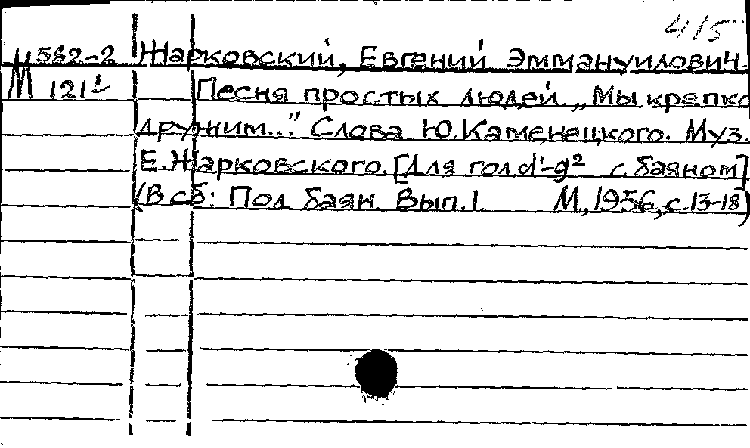 415
М 582-2 Жарковский, Евгений Эммануилович.
М 121¹ Песня простых людей „Мы крепко
дружим..." Слова Ю.Каменецкого. Муз.
Е.Жарковского. [Для гол. d¹-g² с баяном]
(В сб: Пой баян. Вып.1. М, 1956, с.13-18)